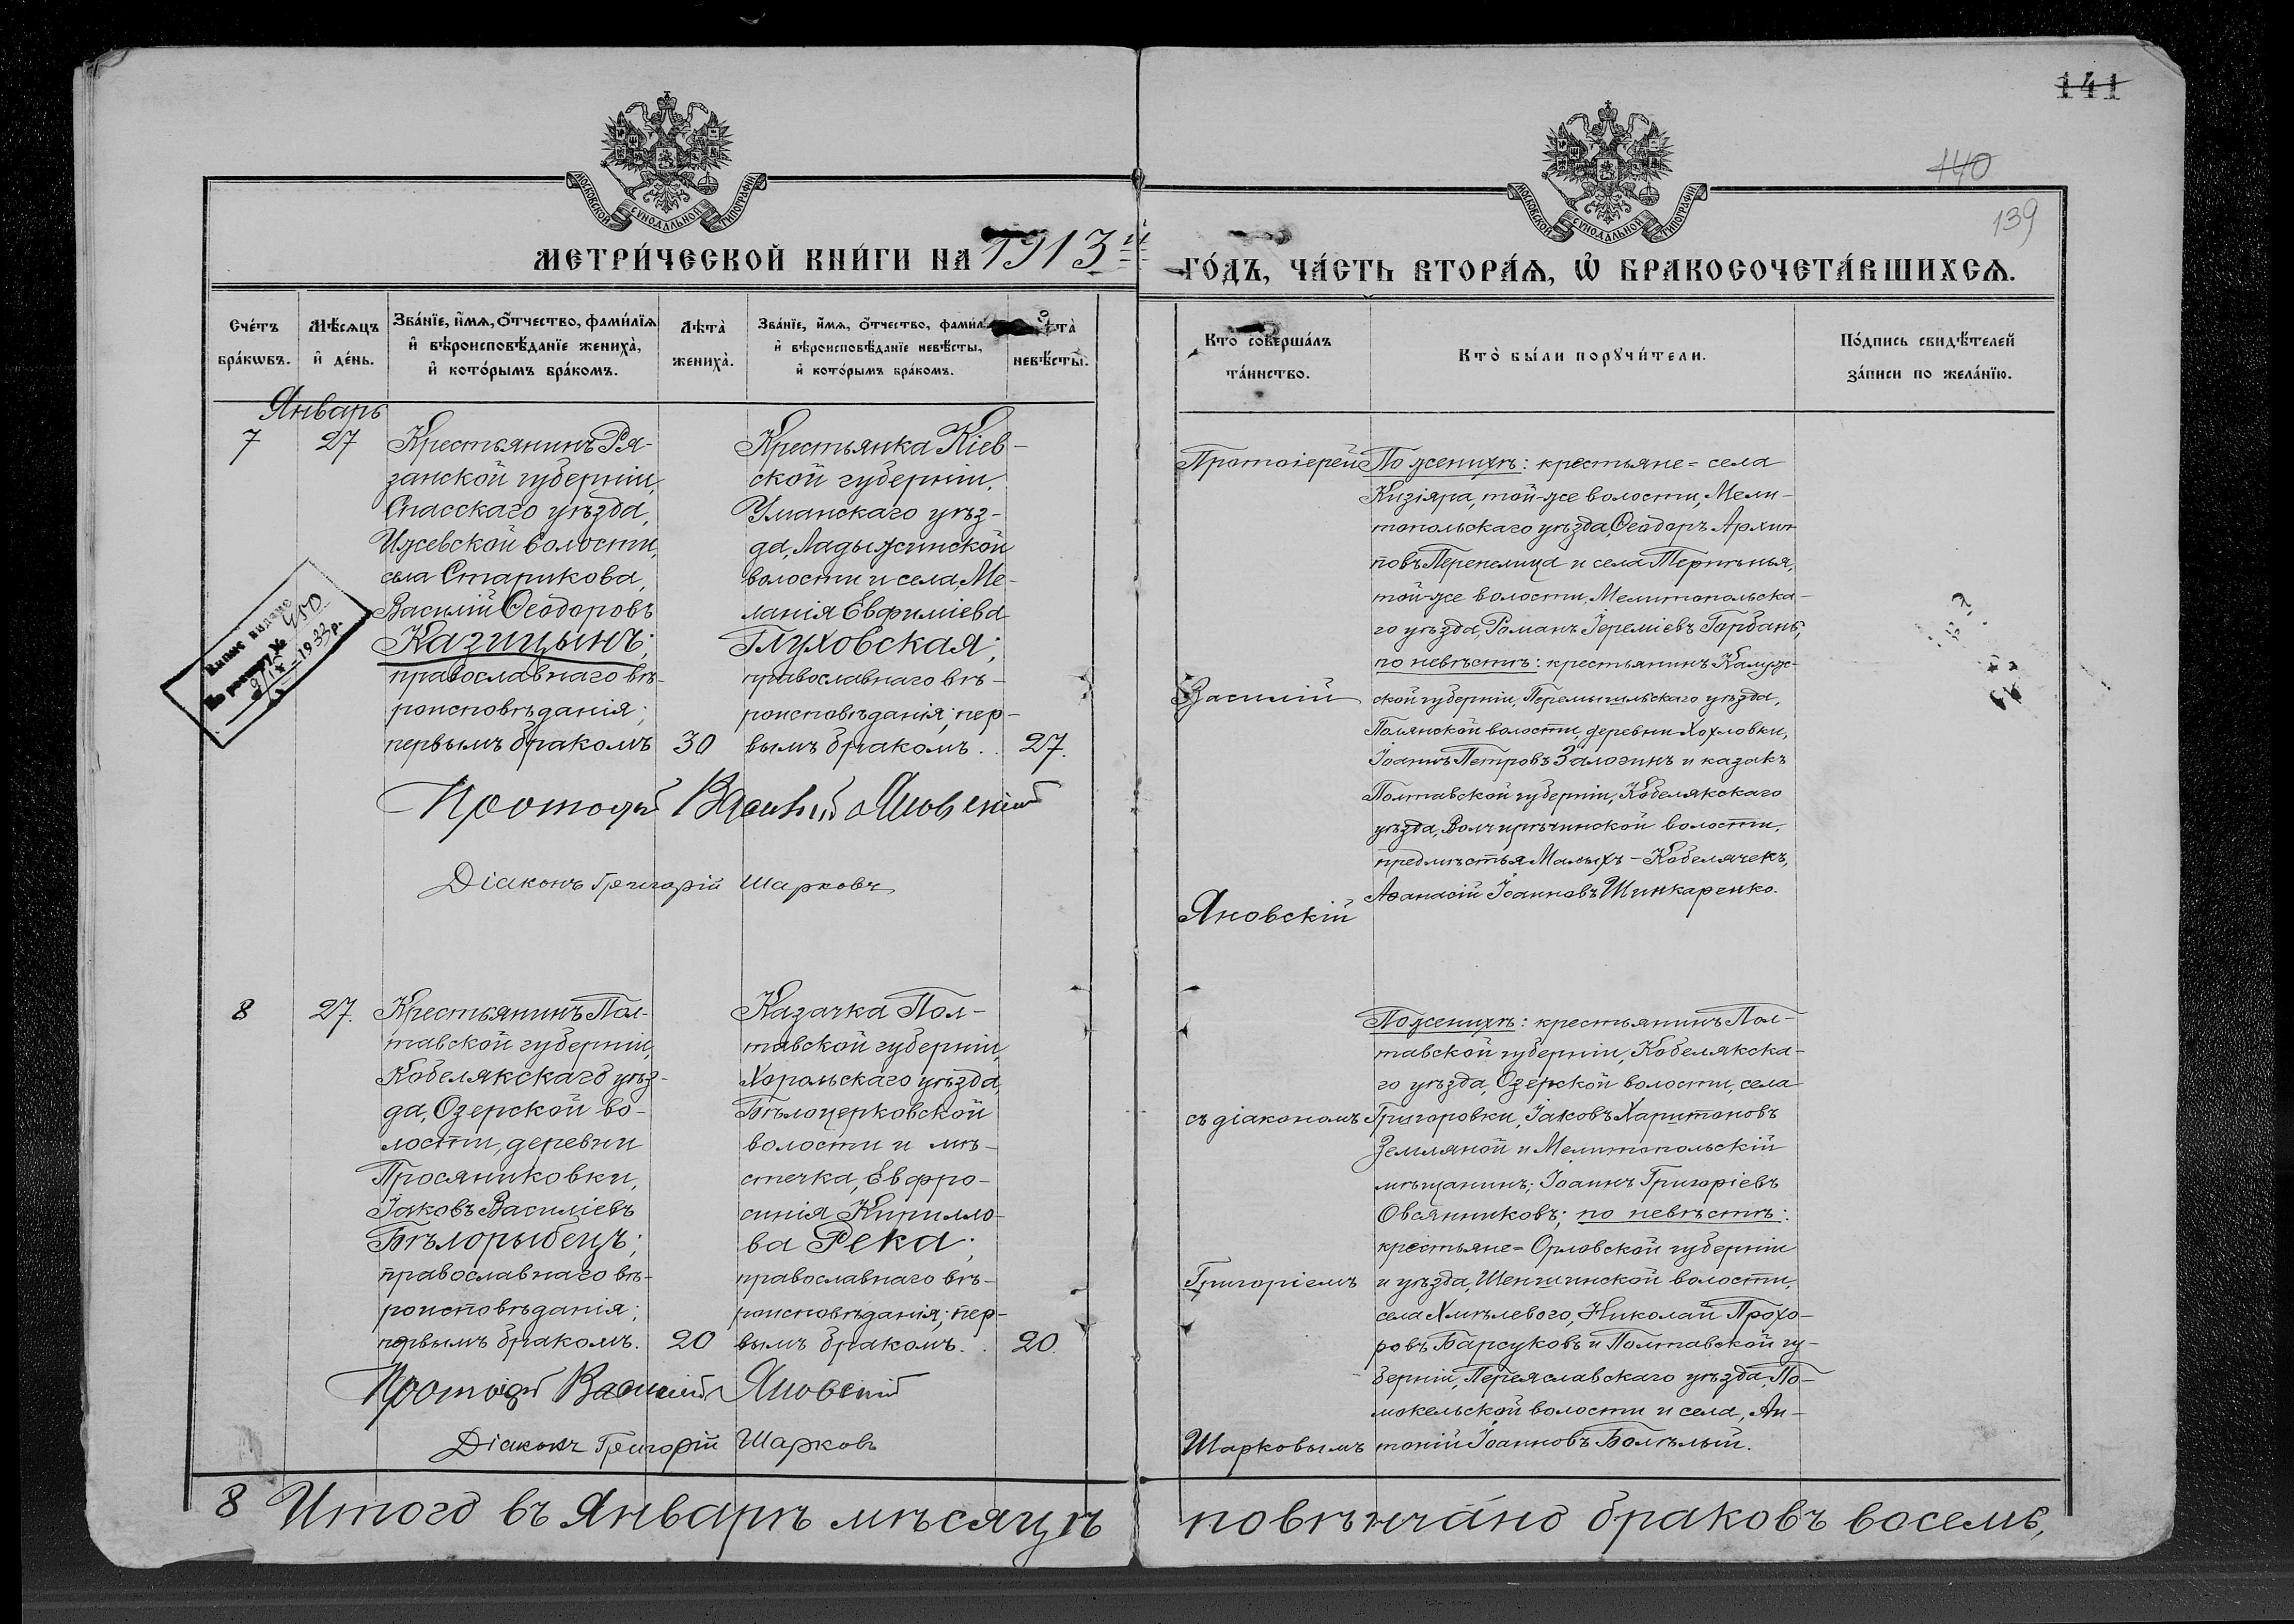 141
140
139
МОСКОВСКОЙ СѴНОДАЛЬНОЙ ТИПОГРАФІИ
МОСКОВСКОЙ СѴНОДАЛЬНОЙ ТИПОГРАФІИ
МЕТРИ́ЧЕСКОЙ КНИ́ГИ НА 1913й
ГО́ДЪ, ЧА́СТЬ ВТОРА́Ѧ, Ѿ БРАКОСОЧЕТА́ВШИХСѦ.
Сче́тъ бра́кѡвъ.
Мѣ́сѧцъ и҆ де́нь.
Зва́нїе, и҆́мѧ, о҆́тчество, фами́лїѧ
и҆ вѣроисповѣ́данїе жениха̀,
и҆ кото́рымъ бра́комъ.
Лѣта̀ жениха̀.
Зва́нїе, и҆́мѧ, о҆́тчество, фами́л
и҆ вѣроисповѣ́данїе невѣ́сты,
и҆ кото́рымъ бра́комъ.
та̀ невѣ́сты.
Кто̀ соверша́лъ та́инство.
Кто̀ бы́ли порꙋчи́тели.
По́дпись свидѣ́телей за́писи по жела́нїю.
Январь
7
27
Крестьянинъ Ря-
занской губерніи,
Спасскаго уѣзда,
Ижевской волости,
села Старикова,
Василій Ѳеодоровъ
Казицынъ;
православнаго вѣ-
роисповѣданія;
первымъ бракомъ
30
Крестьянка Кіев-
ской губерніи,
Уманскаго уѣз-
да, Ладыжинской
волости и села, Ме-
ланія Евфиміева
Глуховская;
православнаго вѣ-
роисповѣданія; пер-
вымъ бракомъ.
27.
Протоіерей Василій Яновскій
Діаконъ Григорій Шарковъ
Выпис видано
По реестру № 450
1933 р.
Протоіерей
Василій
Яновскій
По женихѣ: крестьяне = села
Кизіяра, той-же волости, Мели-
топольскаго уѣзда, Ѳеодоръ Архип-
повъ Перепелица и села Терпѣнья,
той-же волости, Мелитопольска-
го уѣзда, Романъ Іереміевъ Горбань;
по невѣстѣ: крестьянинъ Калуж-
ской губерніи, Перемышльскаго уѣзда,
Полянской волости, деревни Хохловки,
Іоаннъ Петровъ Залогинъ и казакъ
Полтавской губерніи, Кобелякскаго
уѣзда, волости,
предмѣстья Малыхъ-Кобелячекъ,
Аѳанасій Іоанновъ Шинкаренко.
8
27.
Крестьянинъ Пол-
тавской губерніи,
Кобелякскаго уѣз-
да, Озерской во-
лости, деревни
Просяниковки,
Іаковъ Василіевъ
Бѣлорыбецъ;
православнаго вѣ-
роисповѣданія;
первымъ бракомъ.
20
Казачка Пол-
тавской губерніи,
Хорольскаго уѣзда,
Бѣлоцерковской
волости и мѣ-
стечка, Евфро-
синія Кирилло-
ва Река;
православнаго вѣ-
роисповѣданія; пер-
вымъ бракомъ.
20.
Протоіерей Василій Яновскій
Діаконъ Григорій Шарковъ
съ діакономъ
Григоріемъ
Шарковымъ
По женихѣ: крестьянинъ Пол-
тавской губерніи, Кобелякска-
го уѣзда, Озерской волости, села
Григоровки, Іаковъ Харитоновъ
Земляной и Мелитопольскій
мѣщанинъ; Іоаннъ Григоріевъ
Овсянниковъ; по невѣстѣ:
крестьяне = Орловской губерніи
и уѣзда, Шеншинской волости,
села Хмѣлевого, Николай Прохо-
ровъ Барсуковъ и Полтавской гу-
берніи, Переяславскаго уѣзда, По-
мокельской волости и села, Ан-
тоній Іоанновъ Болѣлый.
8 Итого въ Январѣ мѣсяцѣ
повѣнчано браковъ восемь,